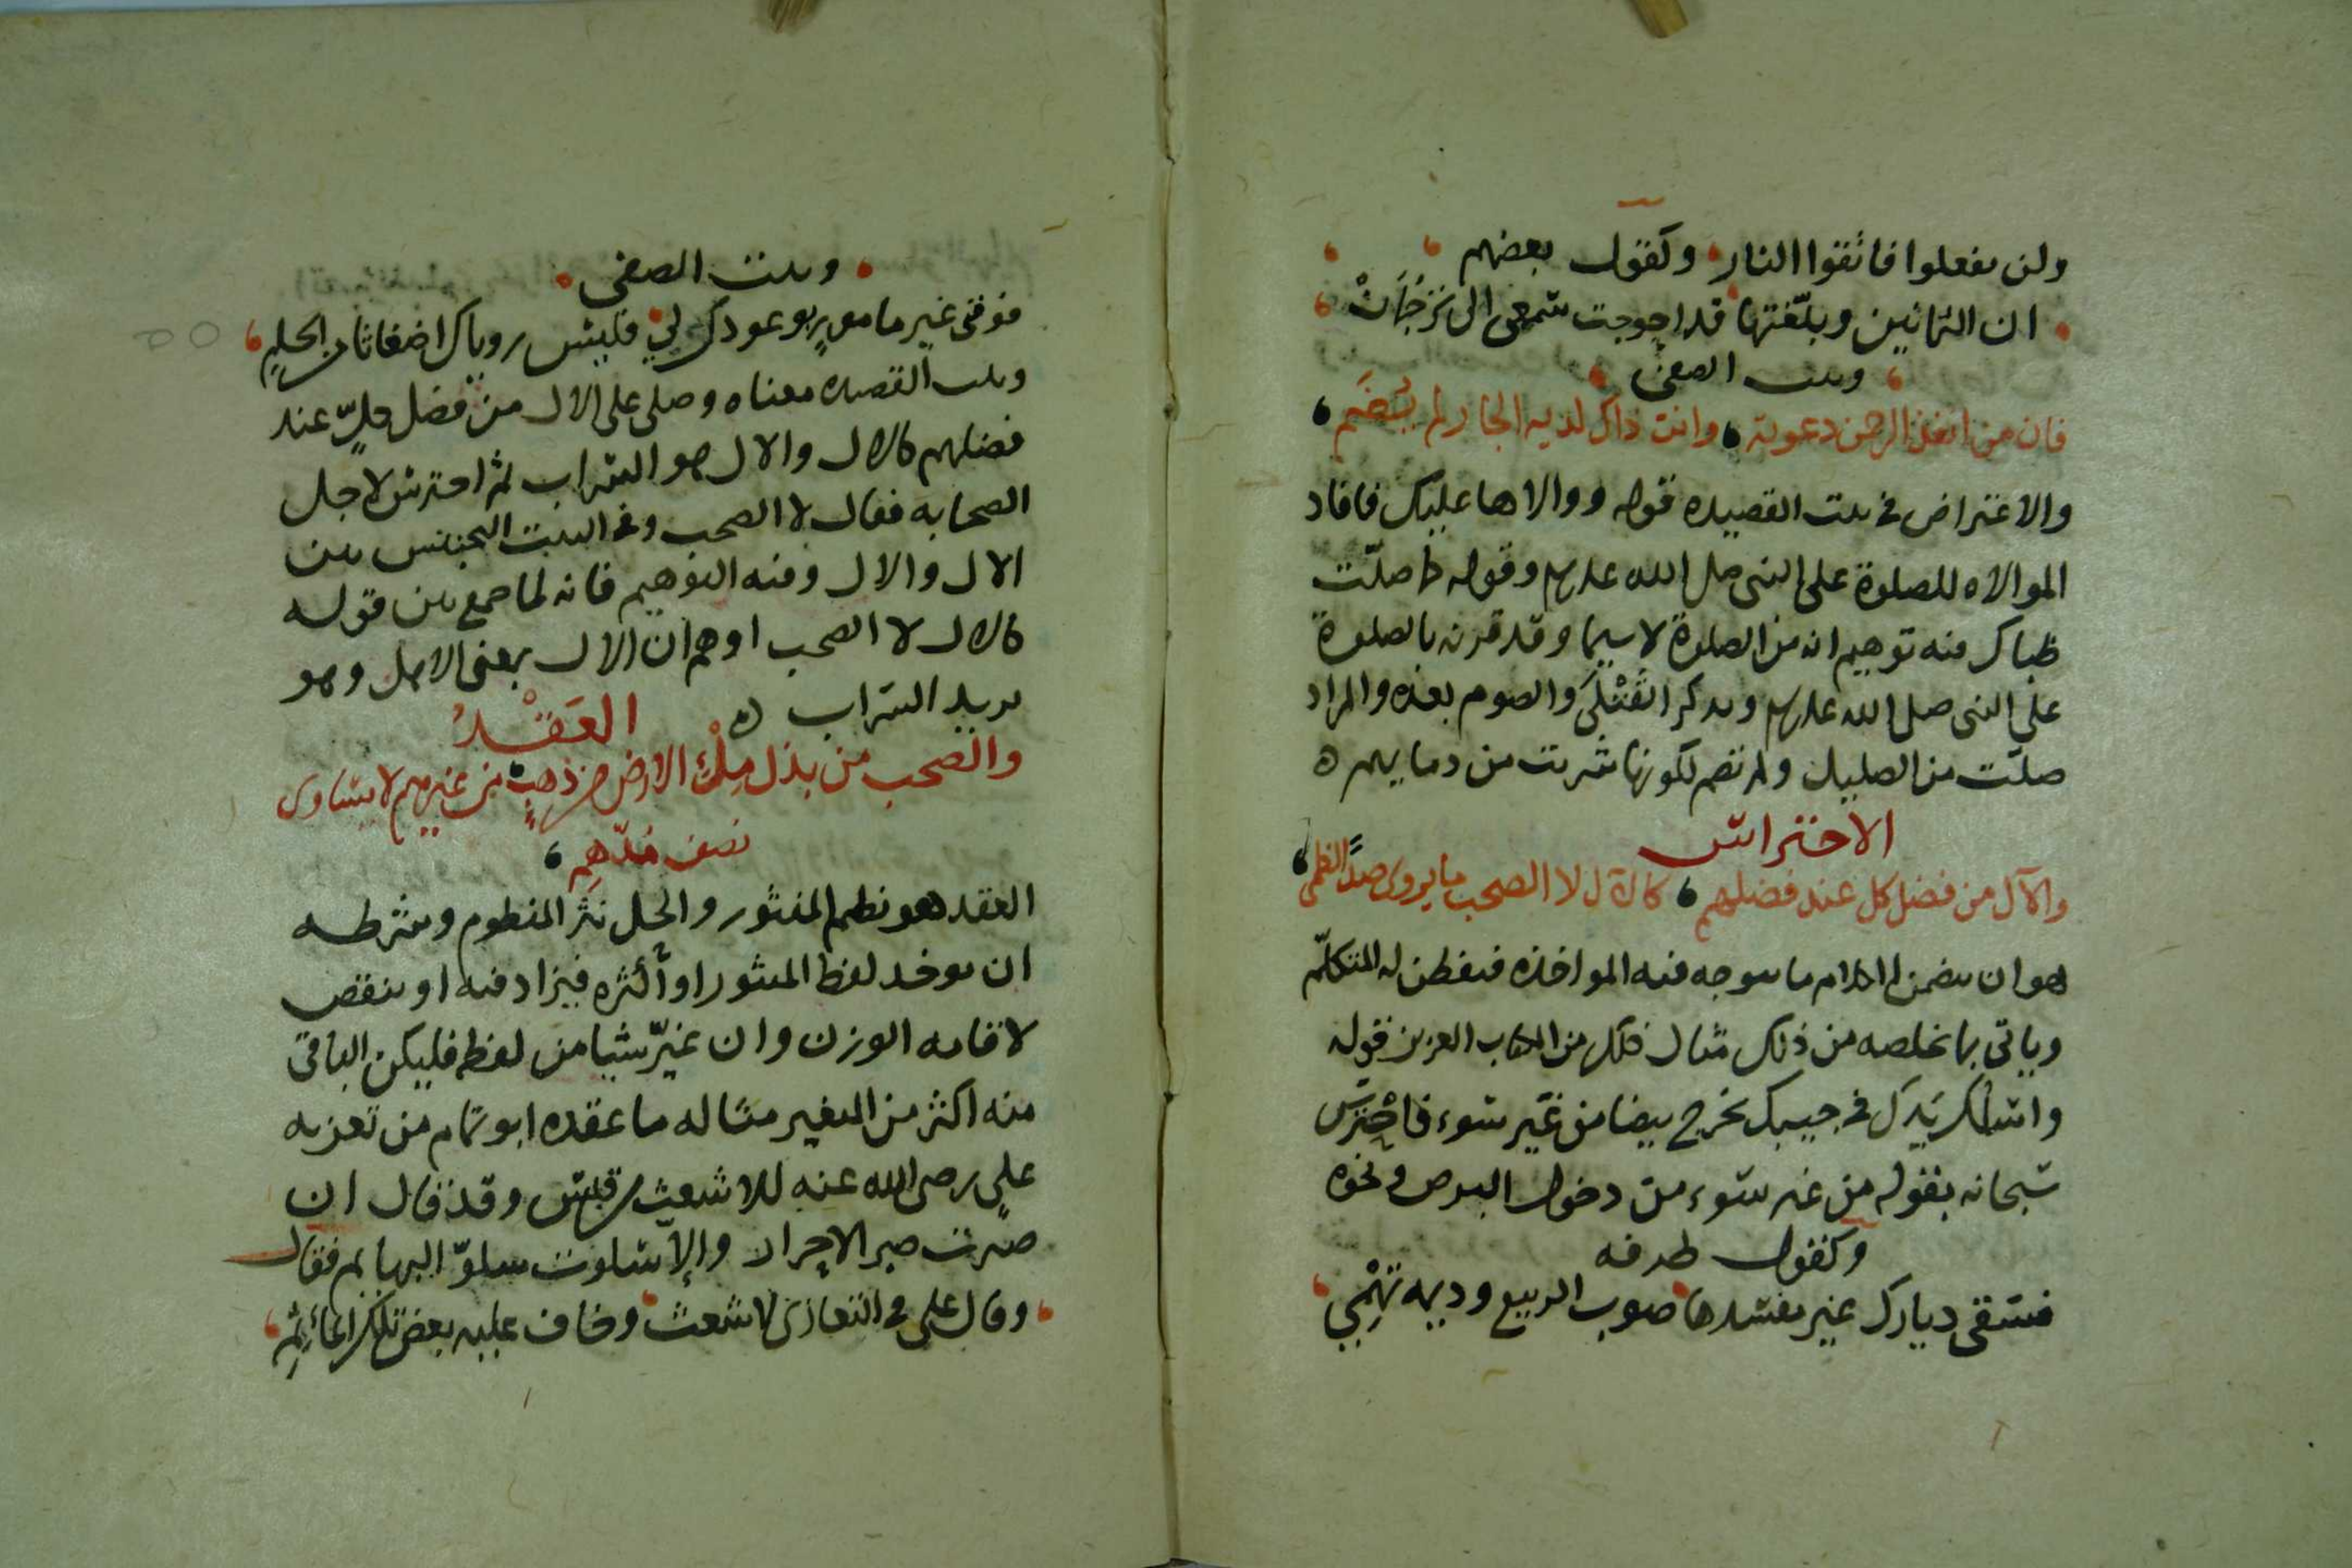 ولن تفعلوا فاتقوا النار وكقول بعضهم
ان الثمانين وبلّغتها قد احوجت سمعي الى ترجمان
وبيت الصفي
فان من انفذ الرحمن دعوته وانت ذاك لديه الجار لم يُضَم
والاعتراض في بيت القصيده قوله ووالاها عليك فافاد
الموالاه للصلوة على النبي صلى الله عليه وسلم وقوله ما صلّت
ظباك فيه توهيم انه من الصلوة لا سيما وقد قرنه بالصلوة
على النبي صلى الله عليه وسلم وبذكر والصوم بعده والمراد
صلّت من الصليل ولم تصم لكونها شربت من دمايهم ه
الاحتراس
والآل من فضل كل عند فضلهم كالآل لا الصحب ما يروى صدَّ الظمي
هو ان يتضمن الكلام ما يتوجه فيه المواخذه فيفطن له المتكلّم
وياتي بما يخلصه من ذلك مثال ذلك من الكتاب العزيز قوله
واسلك يَدك في جيبك تخرج بيضا من غير سوء فاحترس
سبحانه بقوله من غير سوء من دخول البرص ونحوه
وكقول طرفه
فسقى ديارك غير مفسدها صوب الربيع وديمه تَهْمِي
وبيت الصفي
فوفّني غير مامورٍ وعودك لي فليس روياك اضغاثا من الحلمِ
وبيت القصيده معناه وصلى على الال من فضل كلٍّ عند
فضلهم كالال والال هو السراب ثم احترس لاجل
الصحابه فقال لا الصحب وفي البيت التجنيس بين
الال والال وفيه التوهيم فانه لما جمع بين قوله
كالال لا الصحب اوهم ان الال بمعنى الاهل وهو
يريد السراب ه العَقْدُ
والصحب من بذل مِلْئ الارض من ذهبٍ من غيرهم لا يساوى
نصف مُدّهِم
العقد هو نظم المنثور والحل نثر المنظوم وشرطه
ان يوخذ لفظ المنثور او أكثره فيزاد فيه او ينقص
لاقامه الوزن وان غيّر شيا من لفظه فليكن الباقي
منه اكثر من المغير مثاله ما عقده ابو تمام من تعزيه
علي رضي الله عنه للاشعث بن قيس وقد قال ان
صبرت صبر الاحرار والإّ سلوت سلوّ البهايم فقال
وقال علي في التعازي لاشعث وخاف عليه بعض تلك المآثِمِ